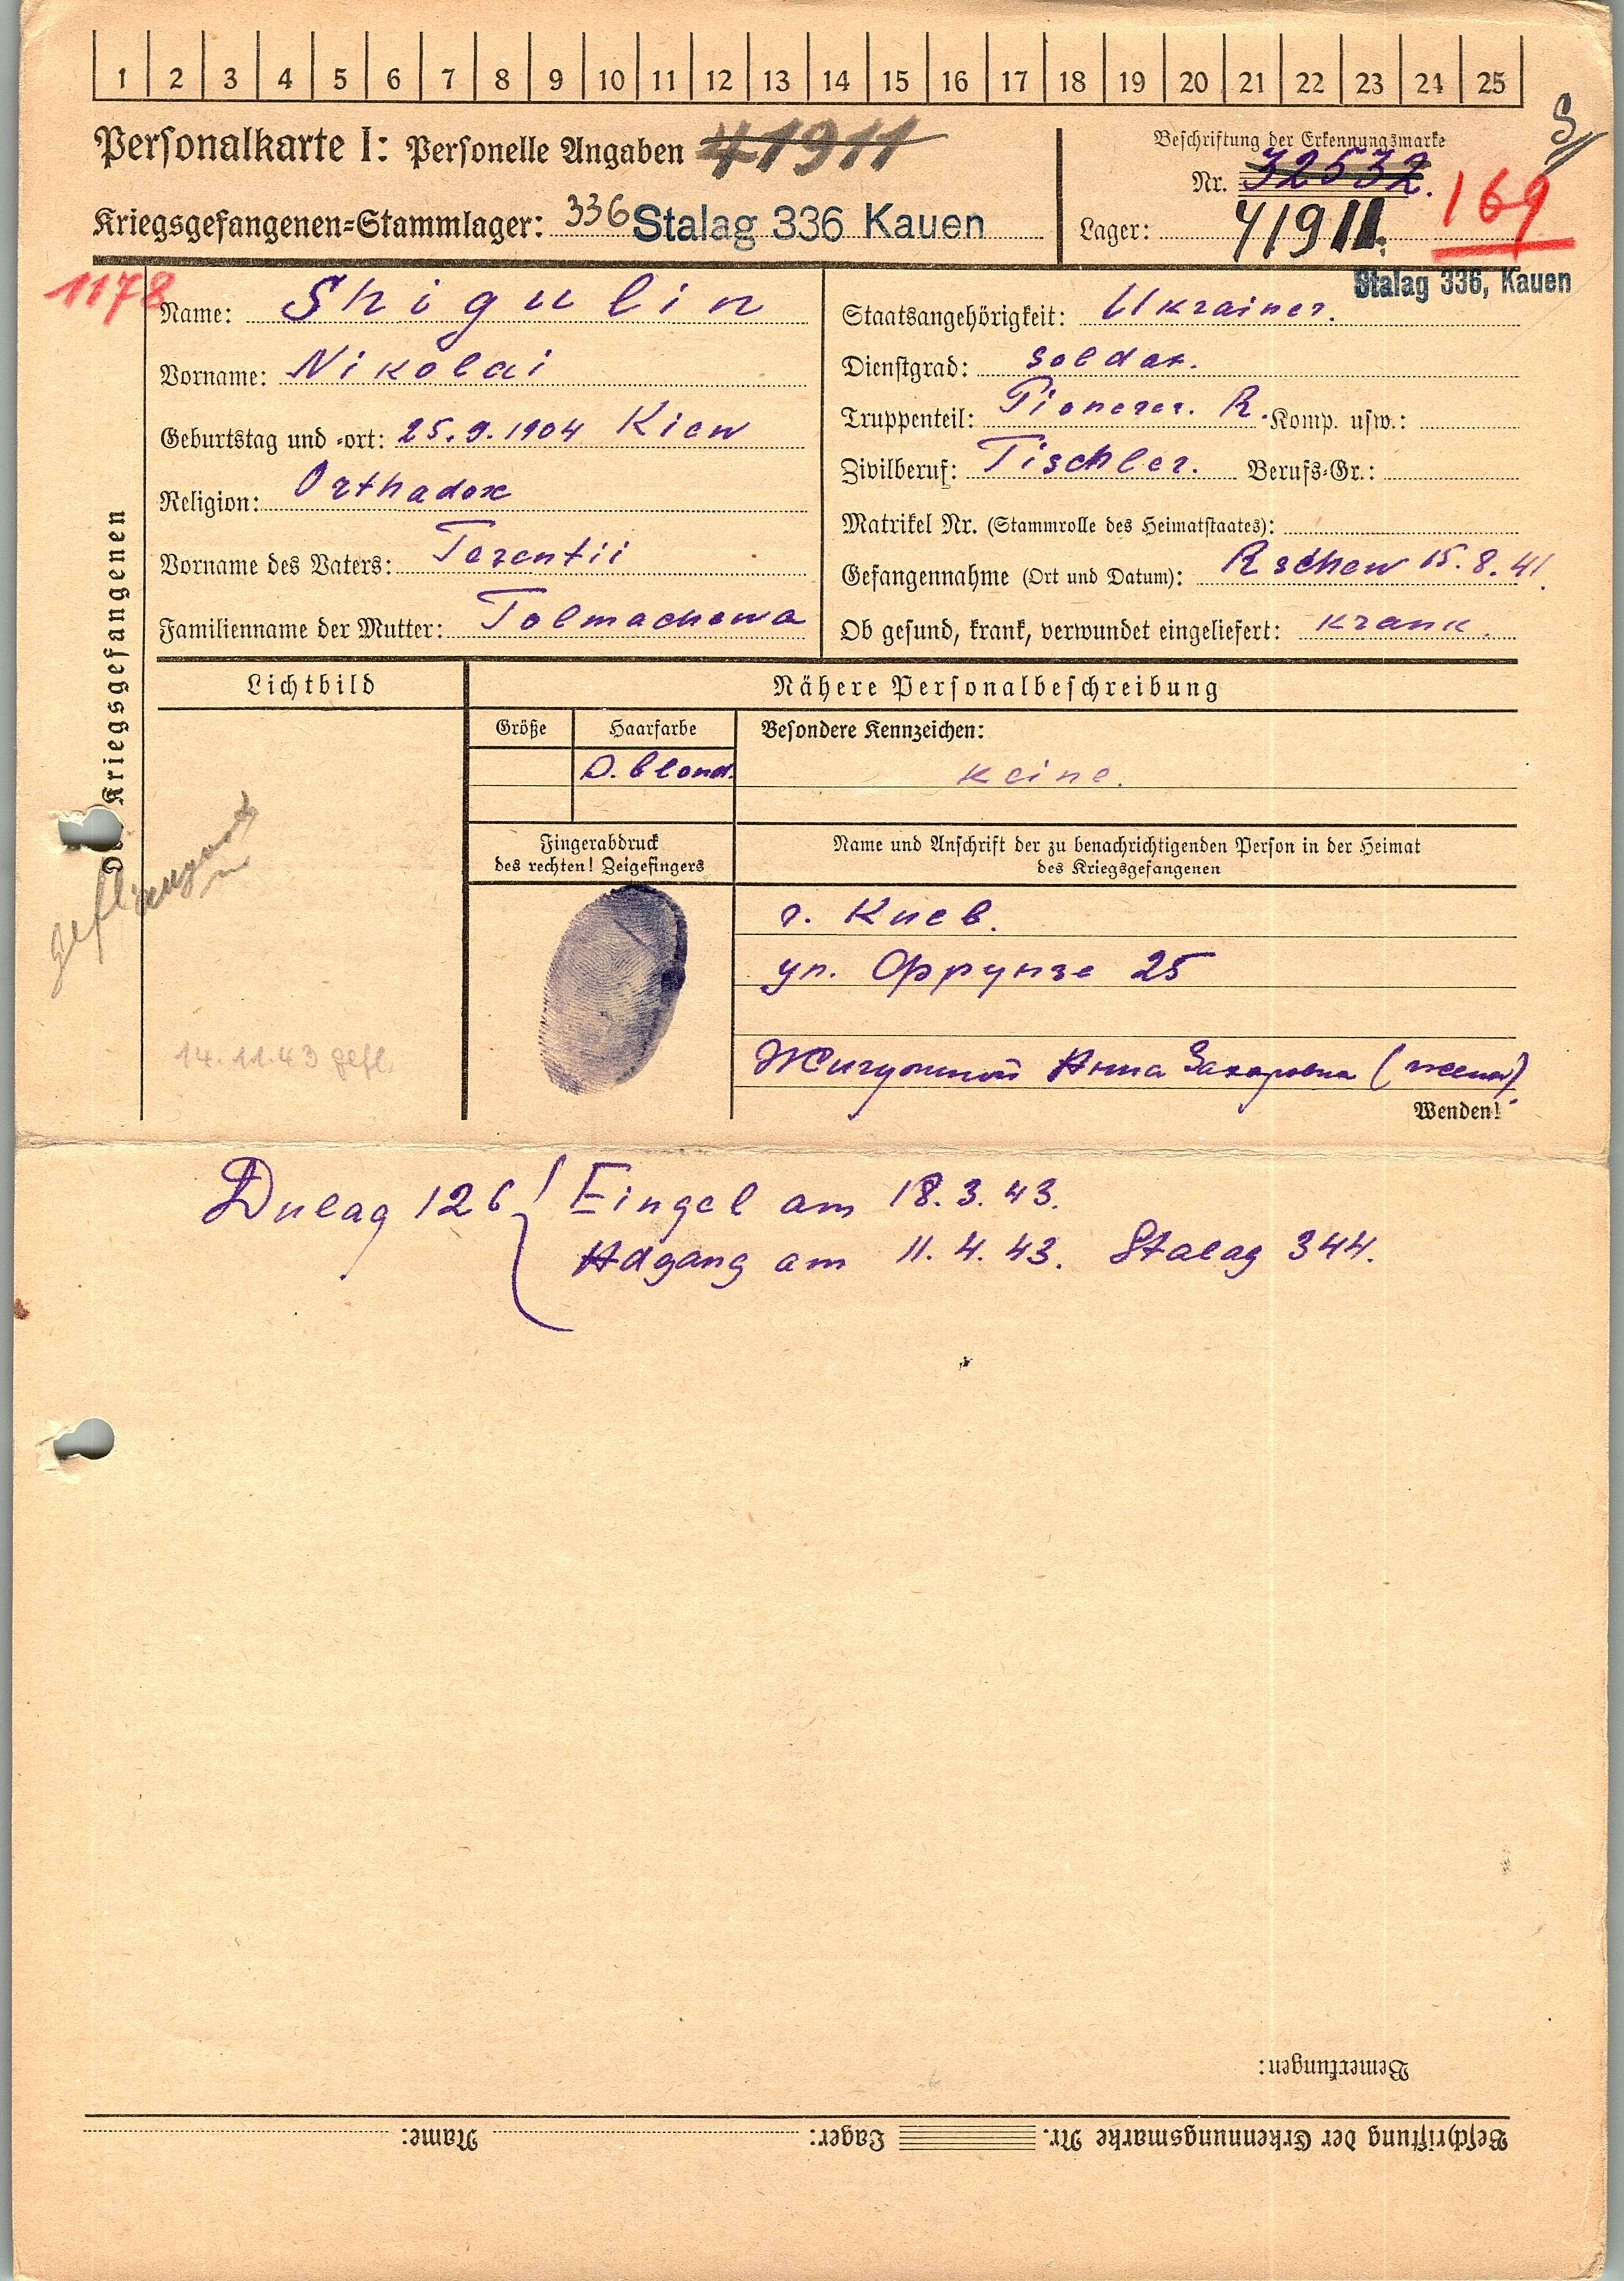 1 2 3 4 5 6 7 8 9 10 11 12 13 14 15 16 17 18 19 20 21 22 23 24 25
Personalkarte I: Personelle Angaben 41911
Beschriftung der Erkennungsmarke
Nr. 32532.
169
Kriegsgefangenen-Stammlager: 336 Stalag 336 Kauen
Lager: 41911.
Stalag 336, Kauen
1178
Des Kriegsgefangenen
Name: Shigulin
Vorname: Nikolai
Geburtstag und -ort: 25.9.1904 Kiew
Religion: Orthadox
Vorname des Vaters: Terentii
Familienname der Mutter: Tolmachewa
Staatsangehörigkeit: Ukrainer.
Dienstgrad: Soldat.
Truppenteil: Pionerer. R. Komp. usw.:
Zivilberuf: Tischler. Berufs-Gr.:
Matrikel Nr. (Stammrolle des Heimatstaates):
Gefangennahme (Ort und Datum): Rschew 15.8.41.
Ob gesund, krank, verwundet eingeliefert: krank.
Lichtbild
Nähere Personalbeschreibung
Größe Haarfarbe Besondere Kennzeichen:
D. blond. keine.
Fingerabdruck
des rechten! Zeigefingers
Name und Anschrift der zu benachrichtigenden Person in der Heimat
des Kriegsgefangenen
г. Киев.
ул. Фрунзе 25
Анна Захаровна (жена)
14.11.43 gefl.
Wenden!
Dulag 126 Eingel am 18.3.43.
Adgang am 11.4.43. Stalag 344.
Bemerkungen:
Beschriftung der Erkennungsmarke Nr. Lager: Name: